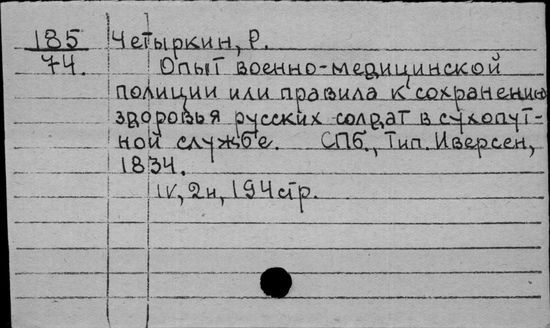 185 Четыркин, Р.
74. Опыт военно-медицинской
полиции или правила к сохранению
здоровья русских солдат в сухопут-
ной службе. СПб., Тип. Иверсен,
1834.
IV, 2н, 194 стр.